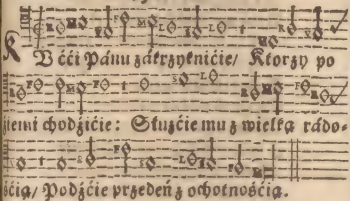 KV cći Pánu zákrzyknićie/ Ktorzy po
źiemi chodźićie: Służćie mu z wielką rádo-
śćią/ Podźćie przedeń z ochotnośćią.